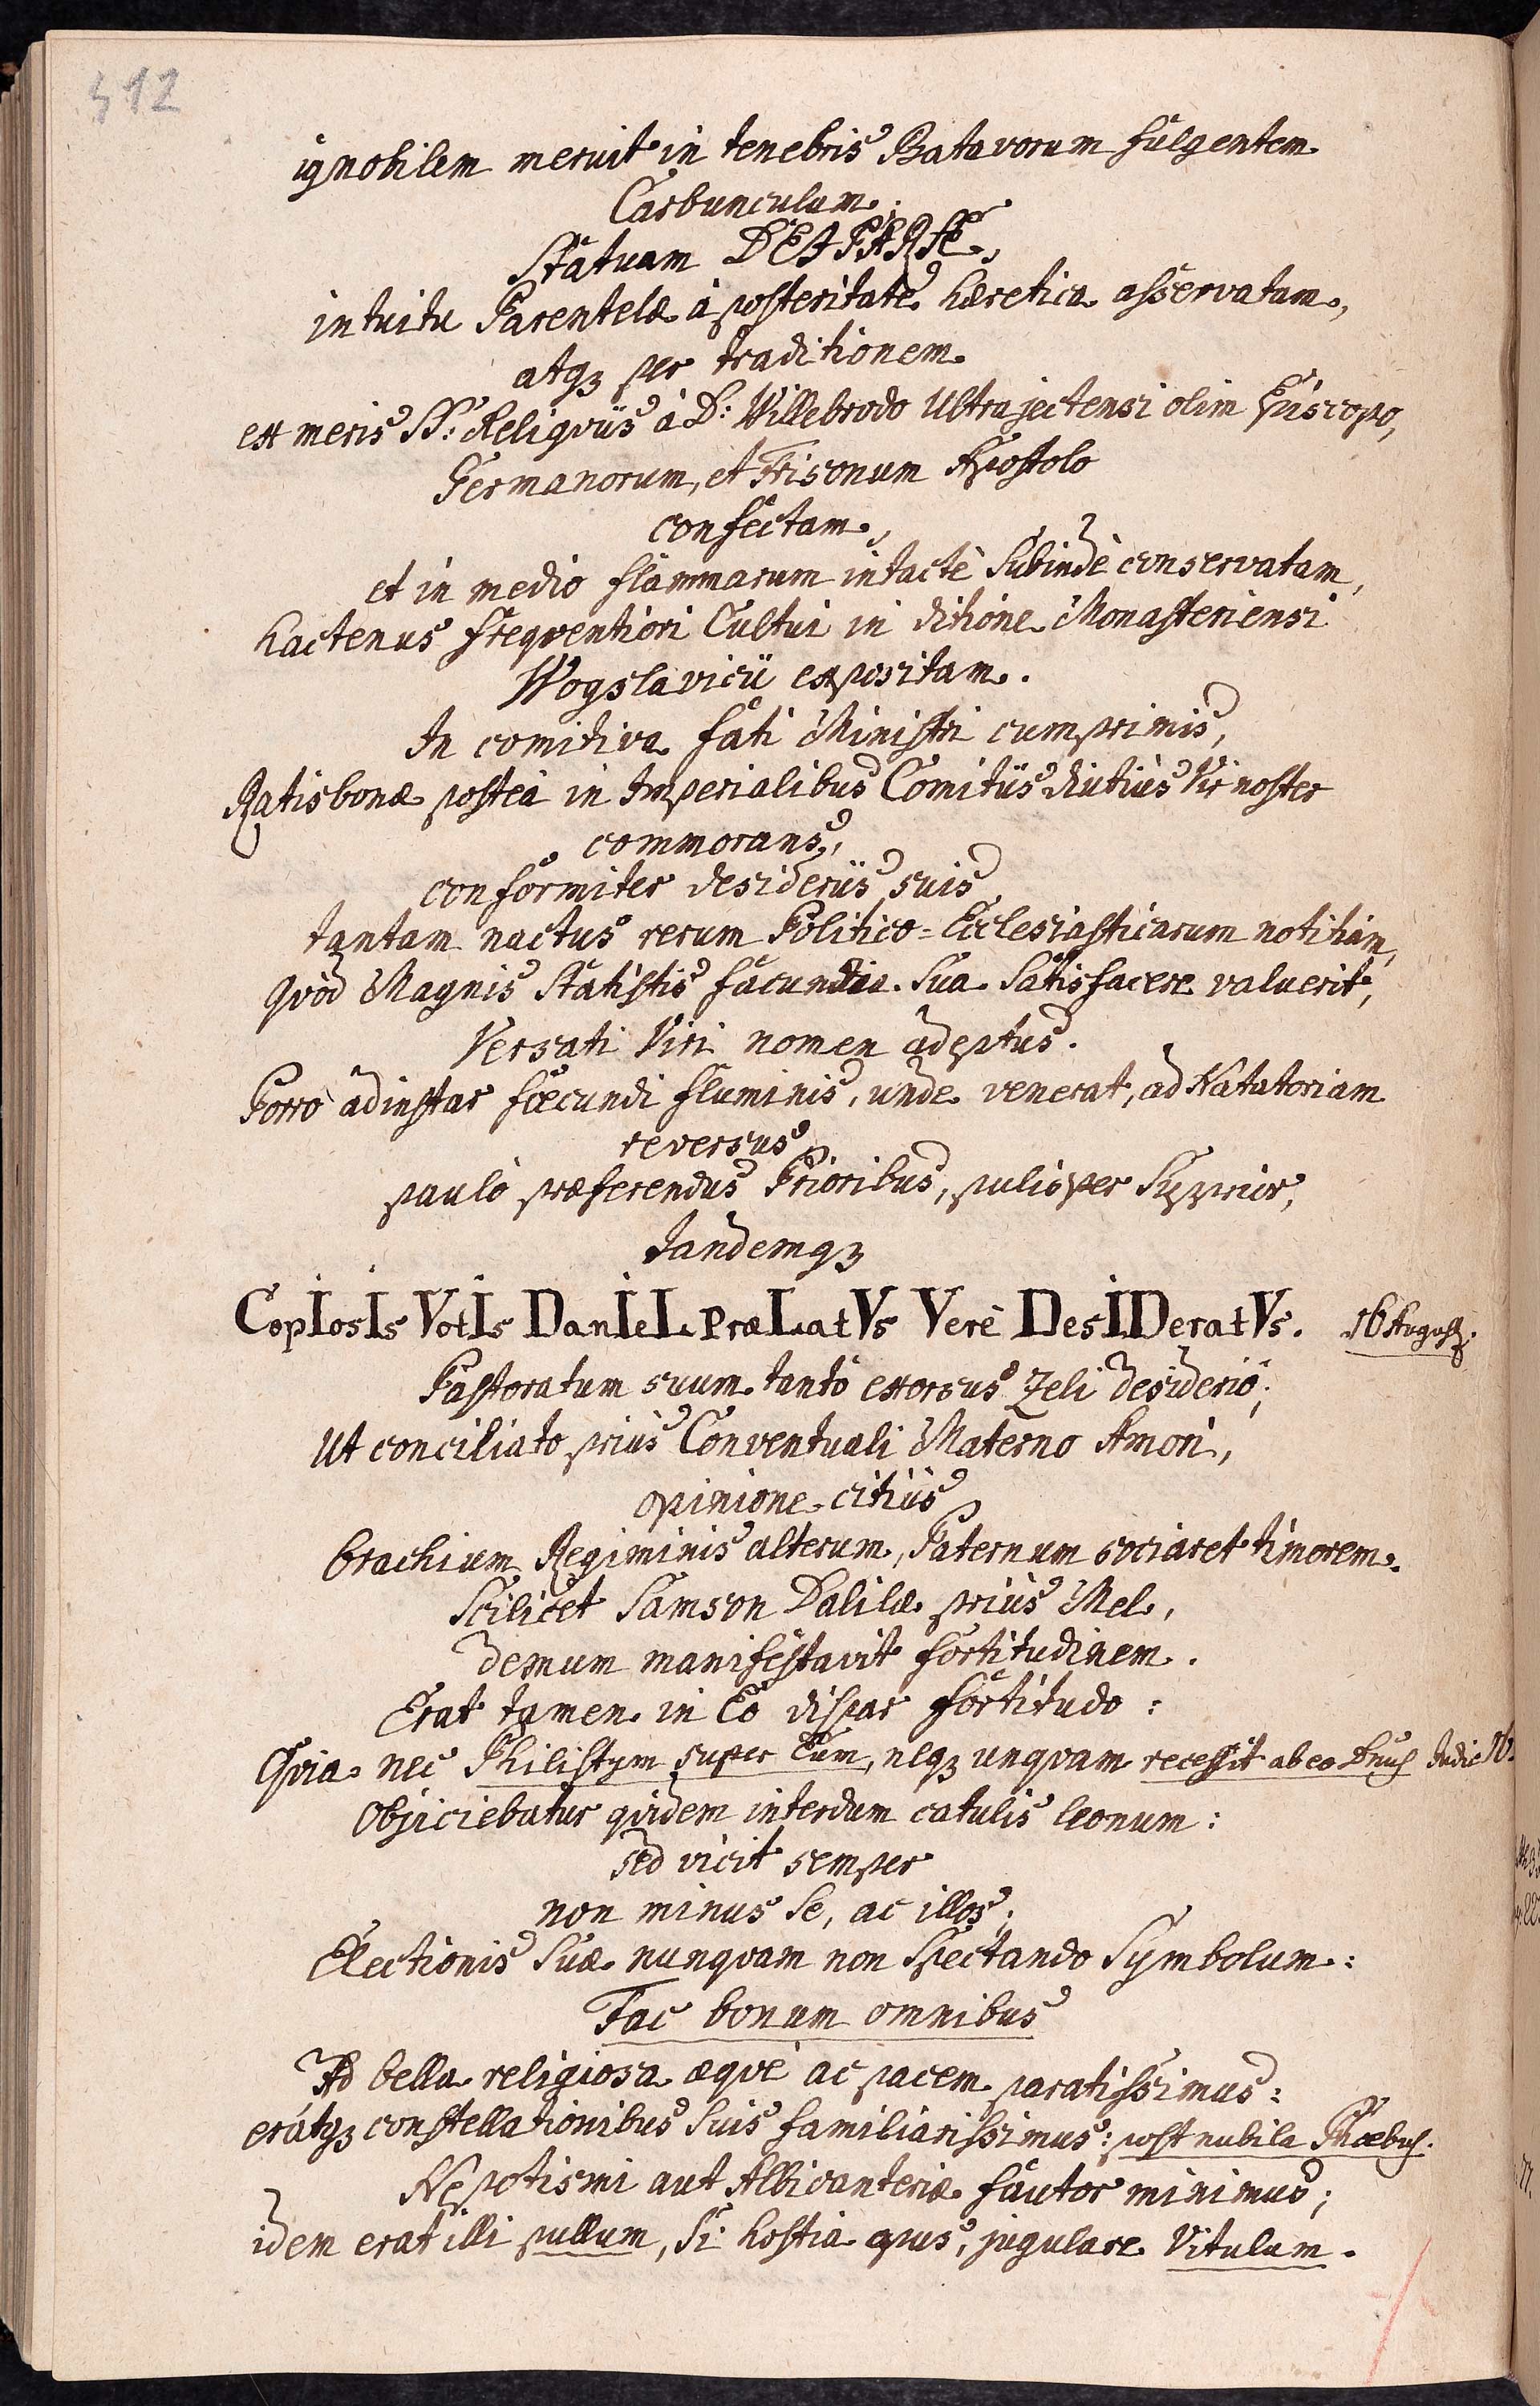 412
ignobilem meruit in tenebris Batavorum fulgentem
Carbunculum.
Statuam DEIPARÆ,
intuitu Parentelæ à posteritate hæretica asservatam,
atq3 per traditionem
ex meris SS: Reliqviis à D: Willebrodo Ultrajectensi olim Episcopo,
Germanorum, et Frisonum Apostolo
confectam,
et in medio flammarum intactè subindè conservatam,
hactenus freqventiori Cultui in ditione Monasteriensi
Wogslavicii expositam.
In comitiva fati Ministri cumprimis,
Ratisbonæ posteà in Imperialibus Comitiis diutiùs Vir noster
commorans,
conformiter desideriis suis
tantam nactus rerum Politico-Ecclesiasticarum notitiam,
qvòd Magnis Statistis facundia sua satisfacere valuerit,
Versati Viri nomen adeptus.
Porrò adinstar fœcundi fluminis, unde venerat, ad Natatoriam
reversus,
paulò præferendus Prioribus, pulisper Supprior,
tandemq3
CopIosIs VotIs DanIeL PræLatVs Verè DesIDeratVs. 16 August:
Pastoratum suum tantò exorsus Zeli desideriô;
Ut conciliato priùs Conventuali Materno Amori,
opinione citiùs
brachium Regiminis alterum, Paternum sociaret timorem.
Scilicet Samson Dalilæ priùs Mel,
demum manifestavit fortitudinem.
Erat tamen in Eô dispar fortitudo:
Qvia nec Philistym super Eum, neq3 unqvam recessit ab eo Dnus Judic 16.
Objiciebatur qvidem interdum catulis leonum:
sed vicit semper
non minus se, ac illos;
Electionis suæ nunqvam non spectando Symbolum:
Fac bonum omnibus
Ad bella religiosa æqvè ac pacem paratissimus:
eratq3 constellationibus suis familiarissimus: post nubila Phœbus.
Nepotismi aut Albicanteriæ fautor minimus;
idem erat illi pullum, si hostia opus, jugulare Vitulum.